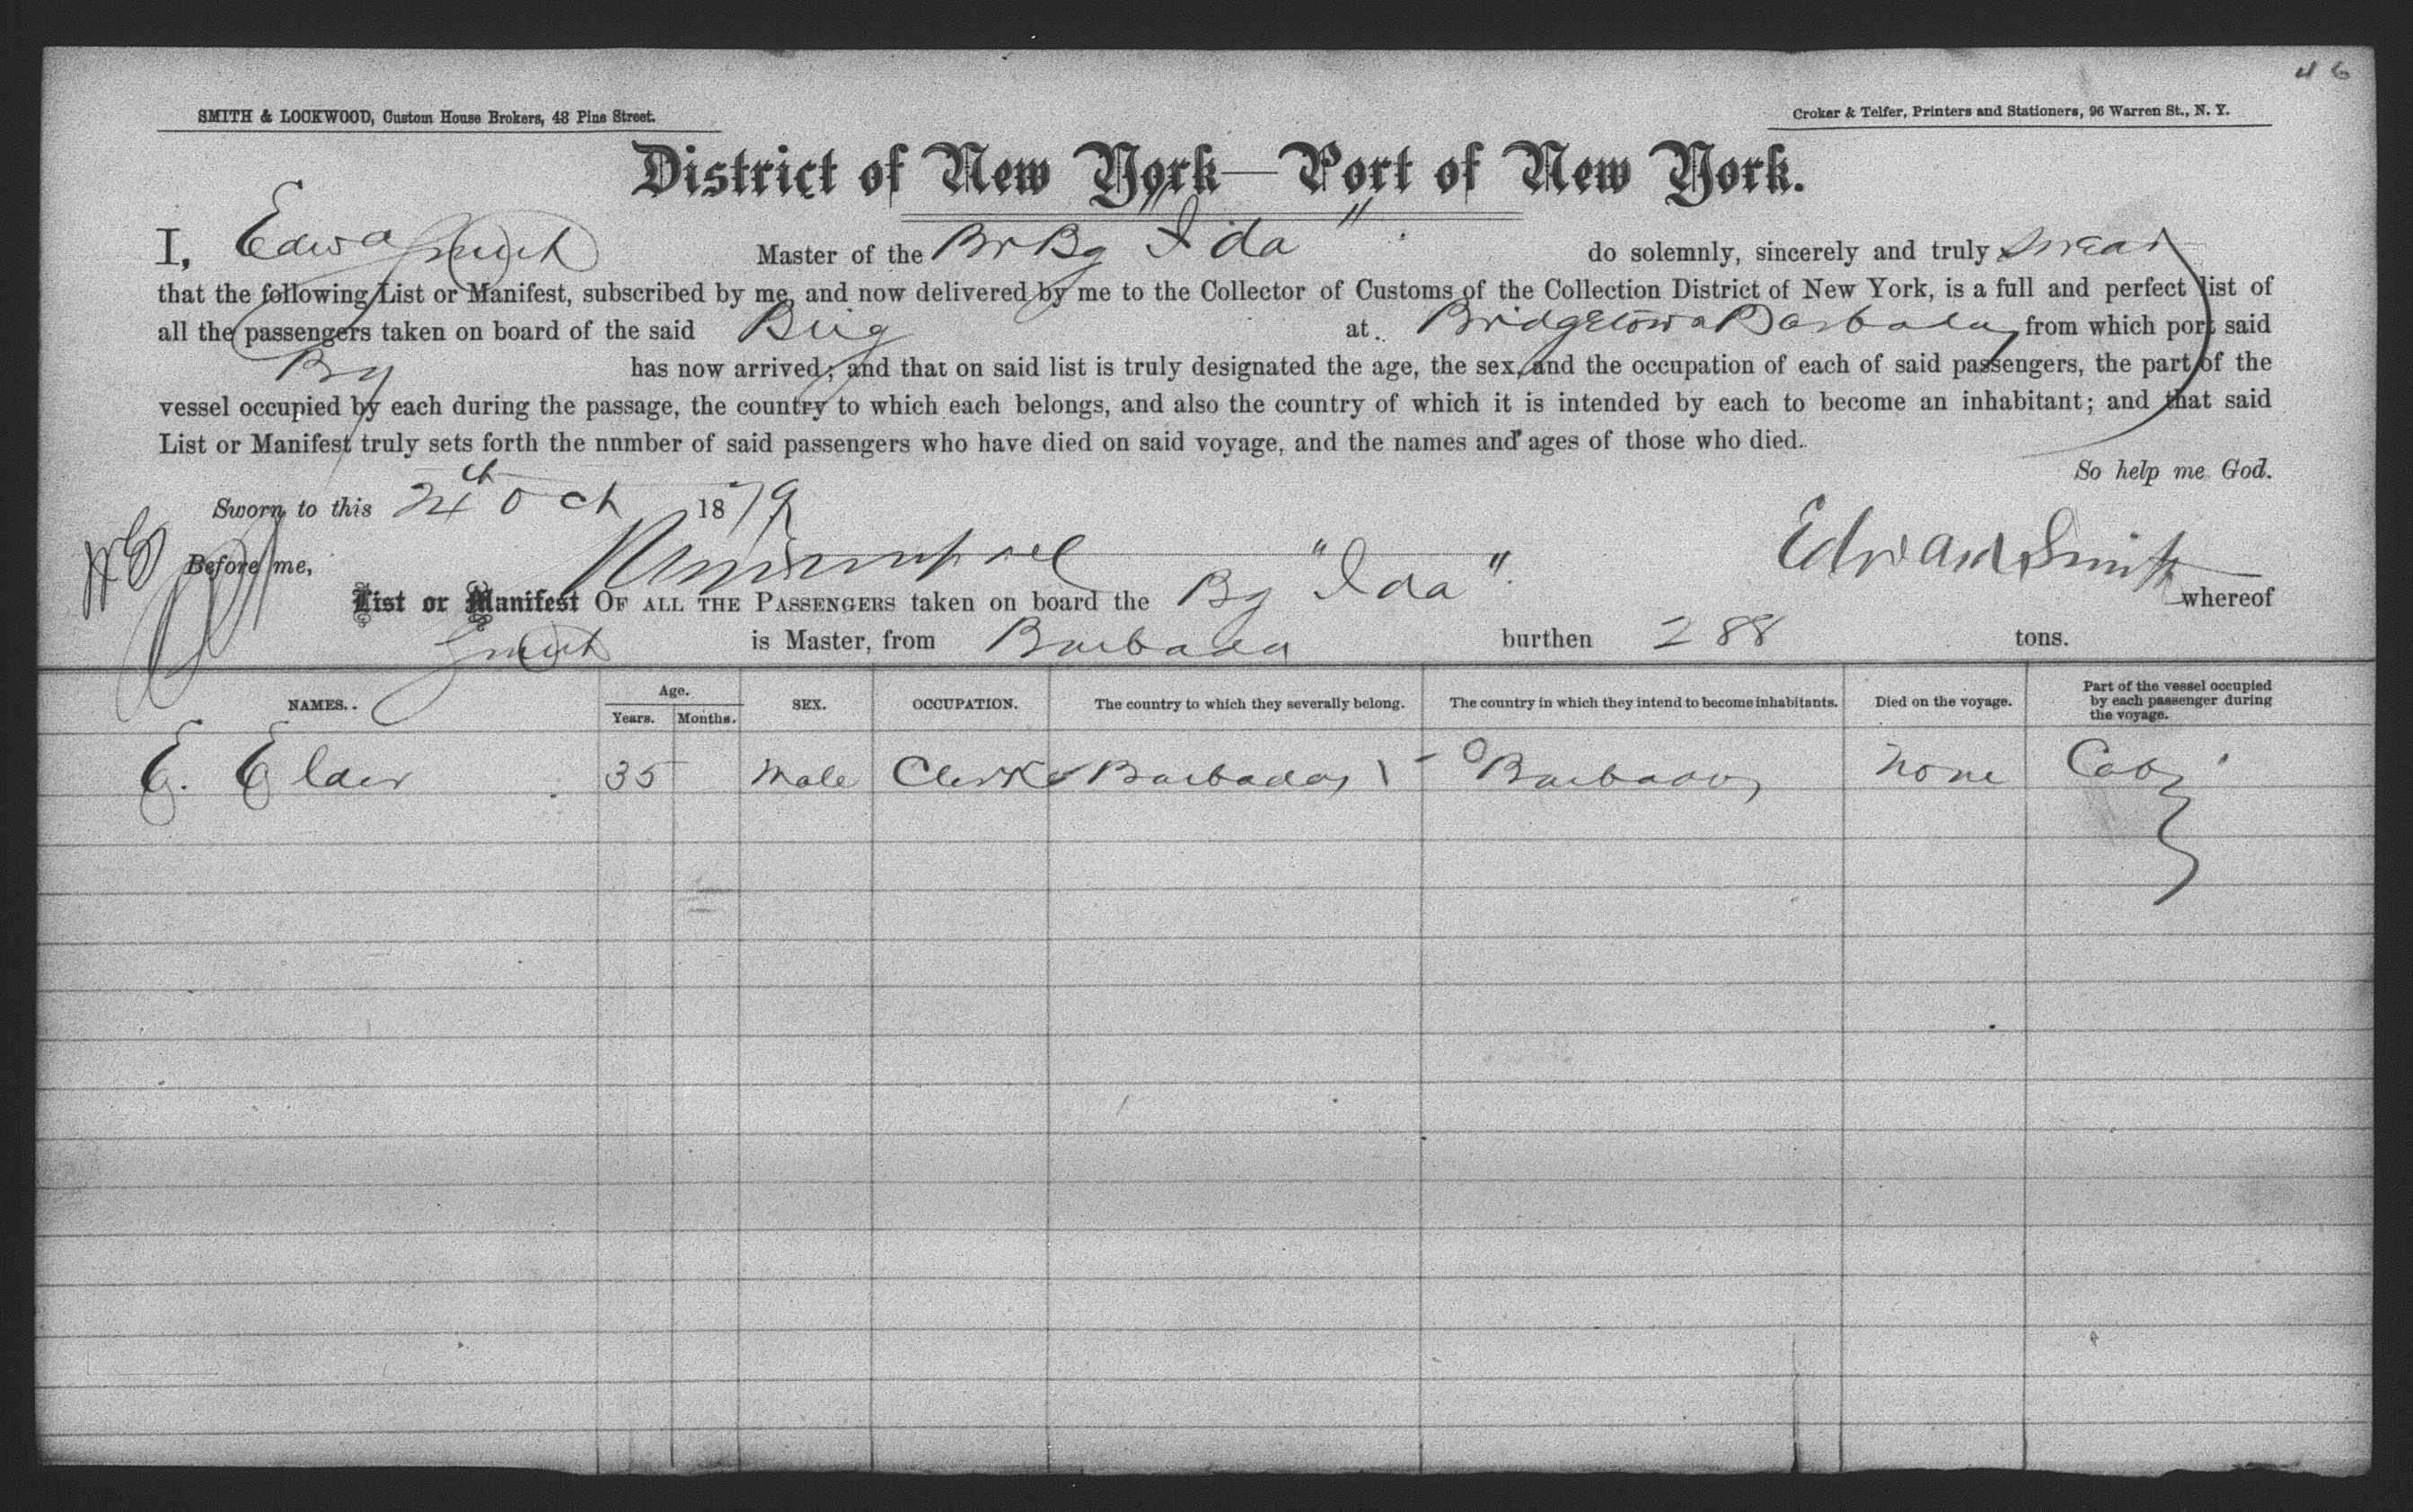 46
SMITH & LOCKWOOD, Custom House Brokers, 48 Pine Street.
Croker & Telfer, Printers and Stationers, 96 Warren St., N. Y.
District of New York—Port of New York.
I, Edwd Smith Master of the Br Bg "Ida" do solemnly, sincerely and truly swear
that the following List or Manifest, subscribed by me, and now delivered by me to the Collector of Customs of the Collection District of New York, is a full and perfect list of
all the passengers taken on board of the said Brig at Bridgetown Barbados from which port said
Bg has now arrived; and that on said list is truly designated the age, the sex, and the occupation of each of said passengers, the part of the
vessel occupied by each during the passage, the country to which each belongs, and also the country of which it is intended by each to become an inhabitant; and that said
List or Manifest truly sets forth the nnmber of said passengers who have died on said voyage, and the names and ages of those who died.
So help me God.
Sworn to this 24th Oct 1879
Before me,
Edward Smith
List or Manifest OF ALL THE PASSENGERS taken on board the Bg "Ida". whereof
Smith is Master, from Barbados burthen 288 tons.
NAMES. Age. Years. Months. SEX. OCCUPATION. The country to which they severally belong. The country in which they intend to become inhabitants. Died on the voyage. Part of the vessel occupied by each passenger during the voyage.
E. Elder 35 Male Clerk Barbados Barbados None